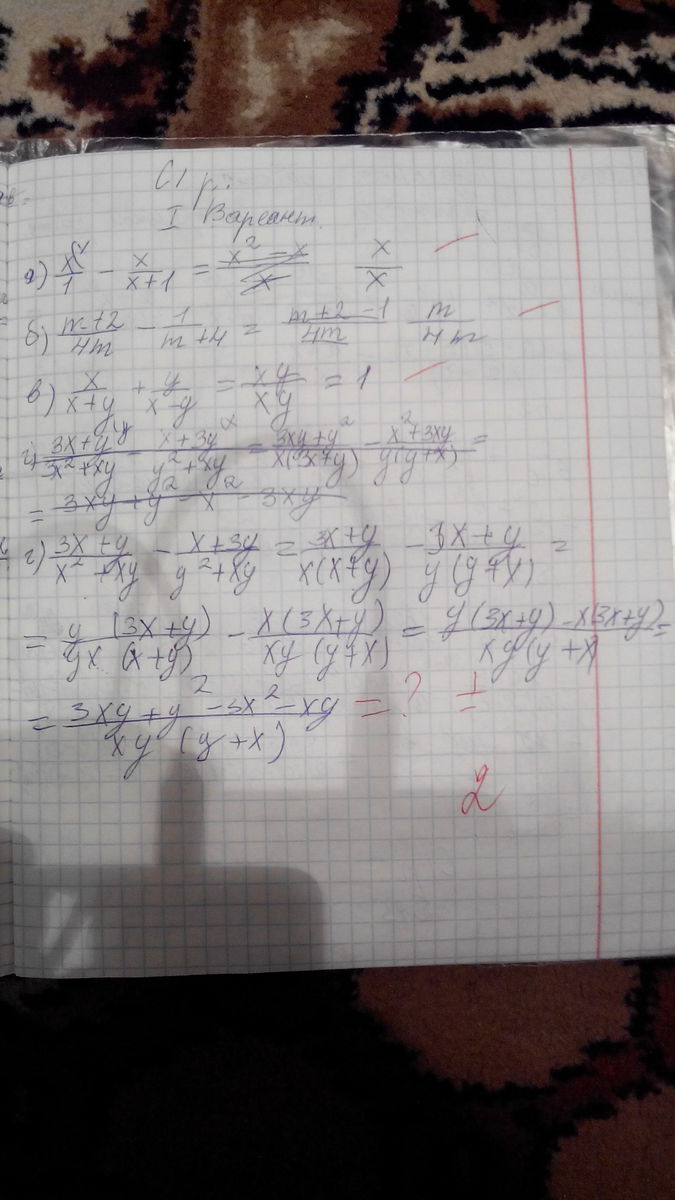 С/р.
I Вариант.
а) x/1 - x/(x+1) = (x² - x)/x x/x
б) (m+2)/4m - 1/(m+4) = (m+2-1)/4m m/4m
в) x/(x+y) + y/(x-y) = xy/xy = 1
г) (3x+y)/(3x²+xy) - (x+3y)/(y²+xy) = (3xy+y²)/(x(3x+y)) - (x²+3xy)/(y(y+x)) =
= 3xy+y²-x²-3xy
г) (3x+y)/(x²+xy) - (x+3y)/(y²+xy) = (3x+y)/(x(x+y)) - (3x+y)/(y(y+x)) =
= y(3x+y)/(yx(x+y)) - x(3x+y)/(xy(y+x)) = (y(3x+y)-x(3x+y))/(xy(y+x) =
= (3xy+y²-3x²-xy)/(xy(y+x)) = ? ±
2